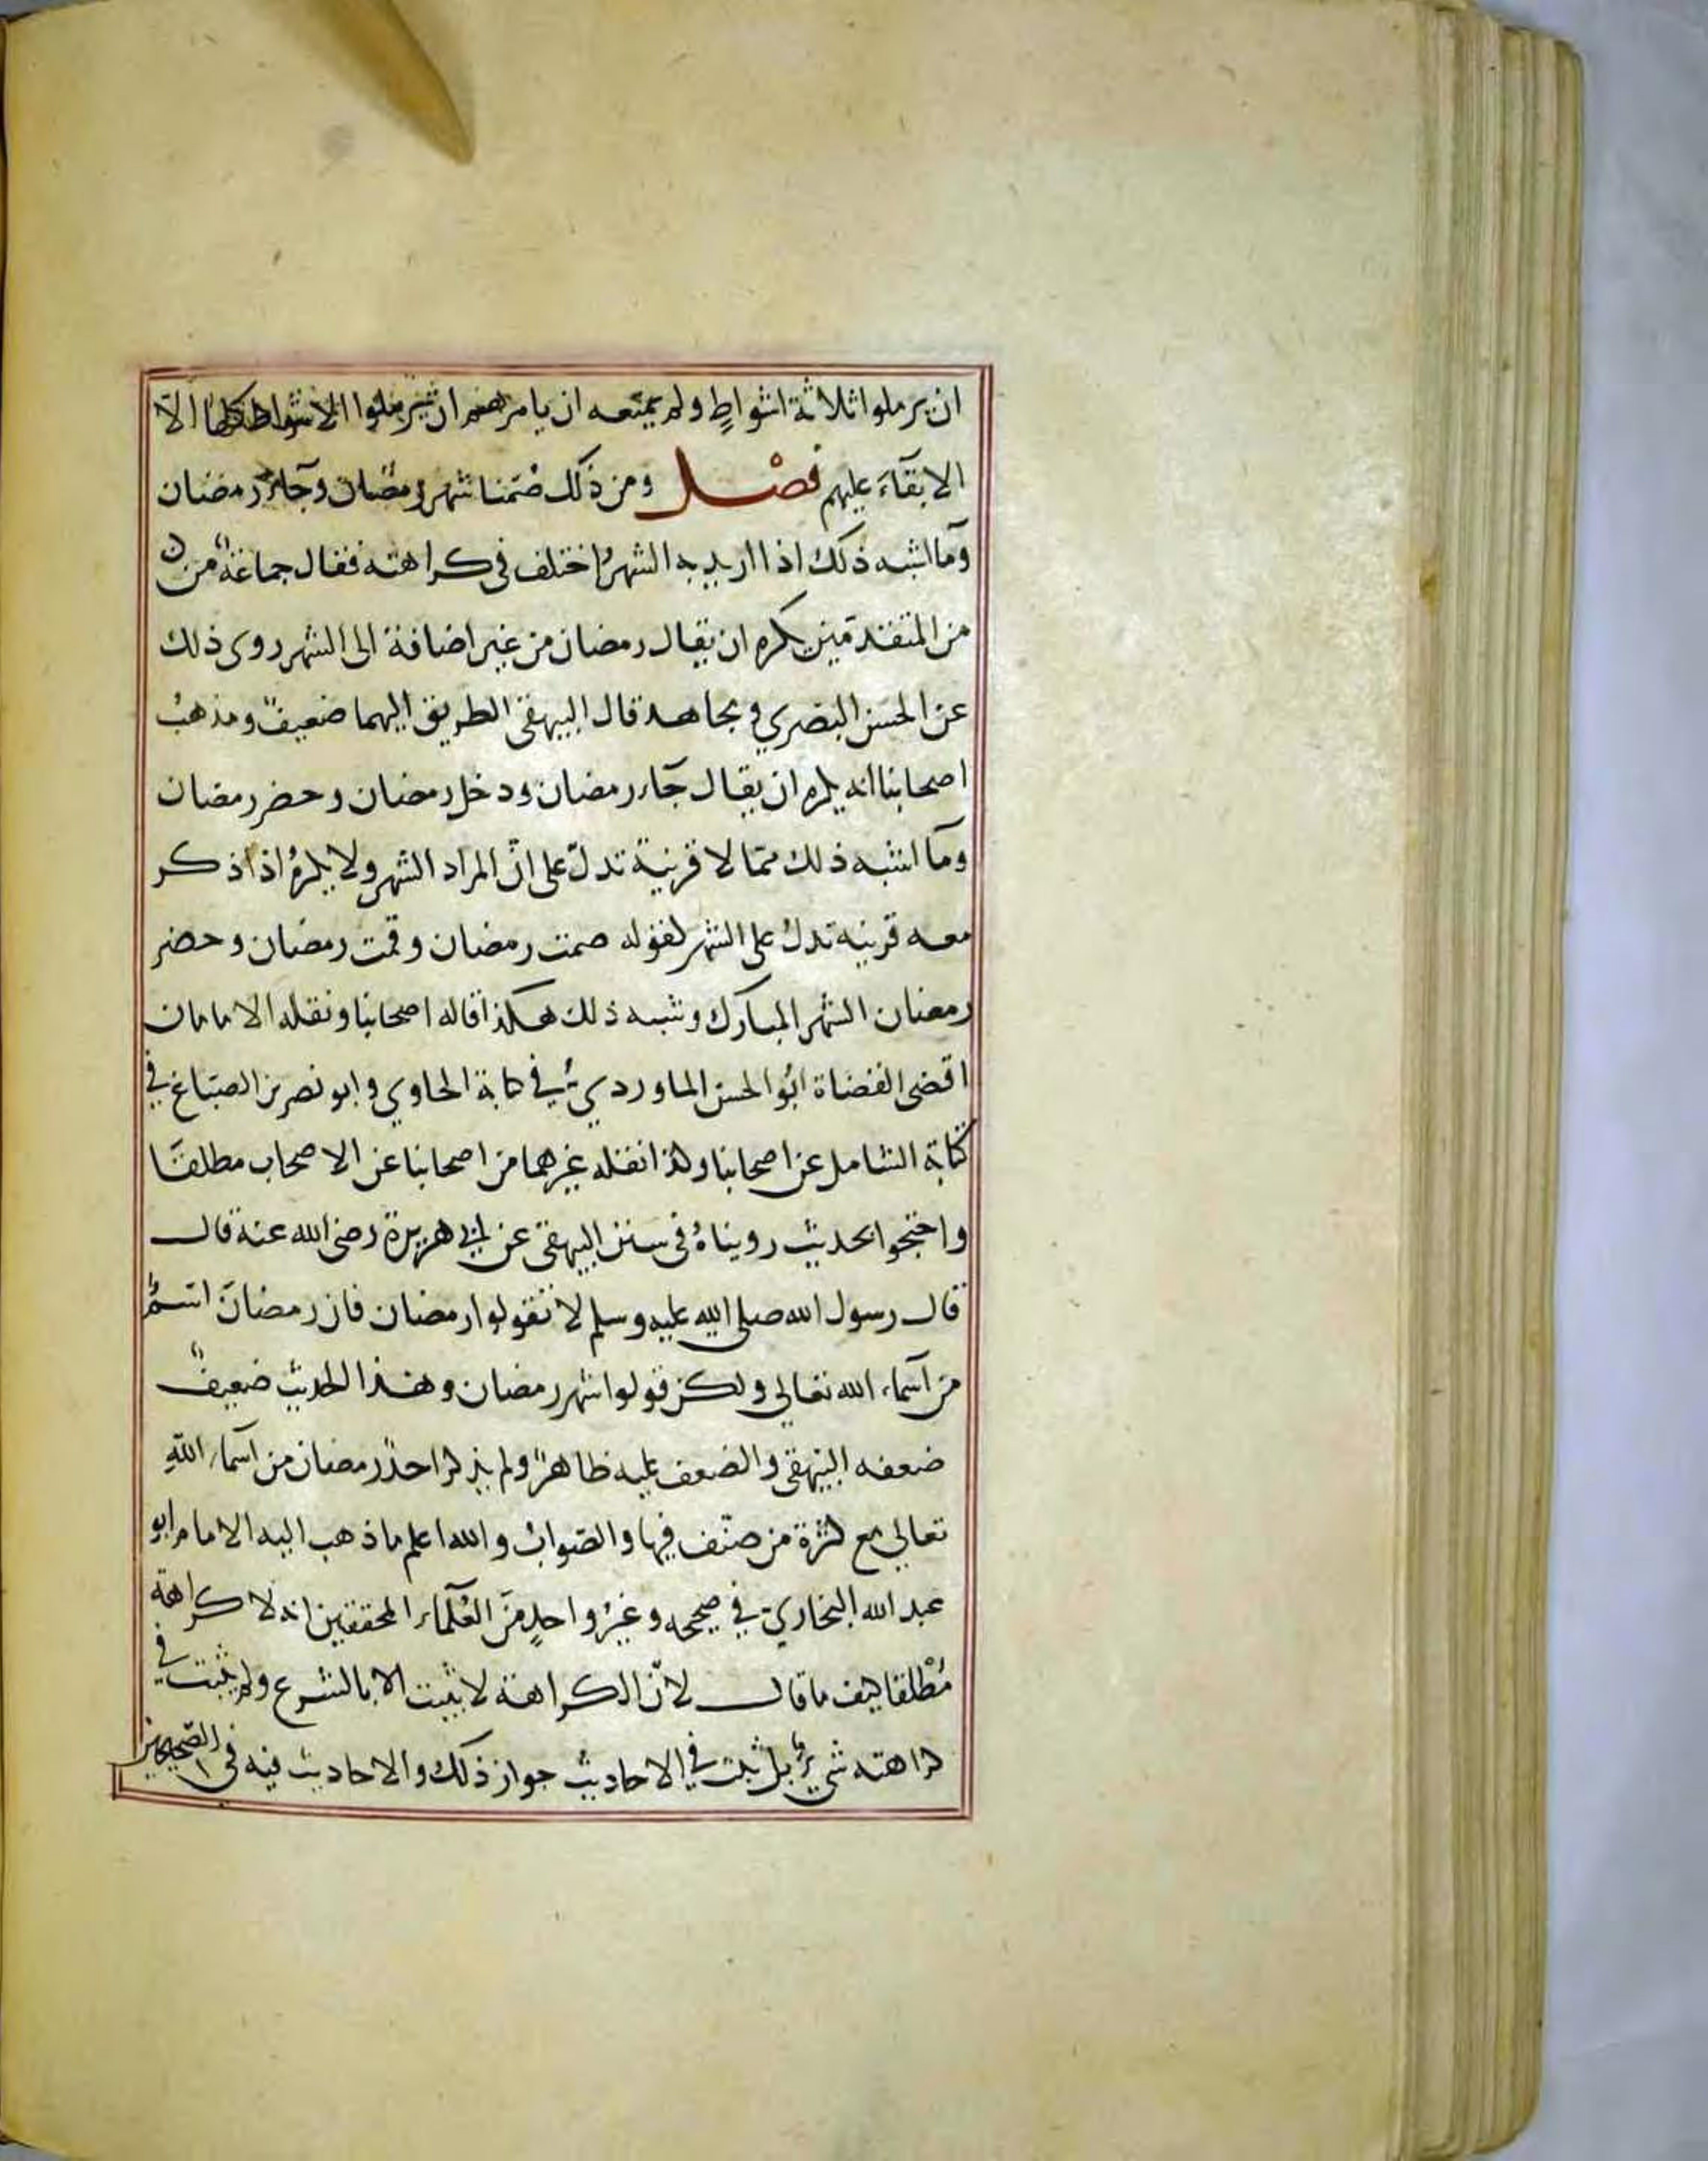 ان يرملوا ثلاثة اشواطٍ ولم يمنعه ان يامرهم ان يرملوا الاشواط كلها الا
الابقآءَ عليهم فصْل ومن ذلك صُمنا شهر رمضان وجآء رمضان
وما اشبه ذلك اذا اريد به الشهر اختلف في كراهته فقال جماعةٌ من
من المتقدمين يكره ان يقال رمضان من غير اضافة الى الشهر روى ذلك
عن الحسن البصري ومجاهد قال البيهقي الطريق اليهما ضعيفٌ ومذهبُ
اصحابنا انه يكره ان يقال جآء رمضان ودخل رمضان وحضر رمضان
وما اشبه ذلك ممّا لا قرينة تدلّ على انّ المراد الشهر ولا يكرهُ اذا ذكر
معه قرينه تدلُ على الشهر لقوله صمت رمضان وقمت رمضان وحضر
رمضان الشهر المبارك وشبه ذلك هكذا قاله اصحابنا ونقله الامامان
اقضى القضاة ابُو الحسن الماورديُ في كتابة الحاوي وابو نصر بن الصبّاغ في
كتابة الشامل عن اصحابنا وكذا نقله غيرهما من اصحابنا عن الاصحاب مطلقًا
واحتجوا بحديث رويناهُ في سنن البيهقي عن ابي هريرة رضي الله عنه قال
قال رسول الله صلى الله عليه وسلم لا تقولوا رمضان فان رمضانَ اسمٌ
من اسماء الله تعالى ولكن قولوا شهر رمضان وهذا الحديث ضعيفٌ
ضعفه البيهقي والضعف عليه ظاهرٌ ولم يذكر احدٌ رمضان من اسماء اللهِ
تعالى مع كثرة من صنّف فيها والصّوابُ والله اعلم ما ذهب اليه الامام ابو
عبد الله البخاريّ في صحيحه وغيرُ واحدٍ منَ العُلمآء المحققين انه لا كراهة
مُطْلقا كيف ما قال لانّ الكراهة لا يثبت الا بالشرع ولم يثبت في
كراهته شيءٌ بل ثبت في الاحاديث جواز ذلك والاحاديث فيه في الصّحيحين